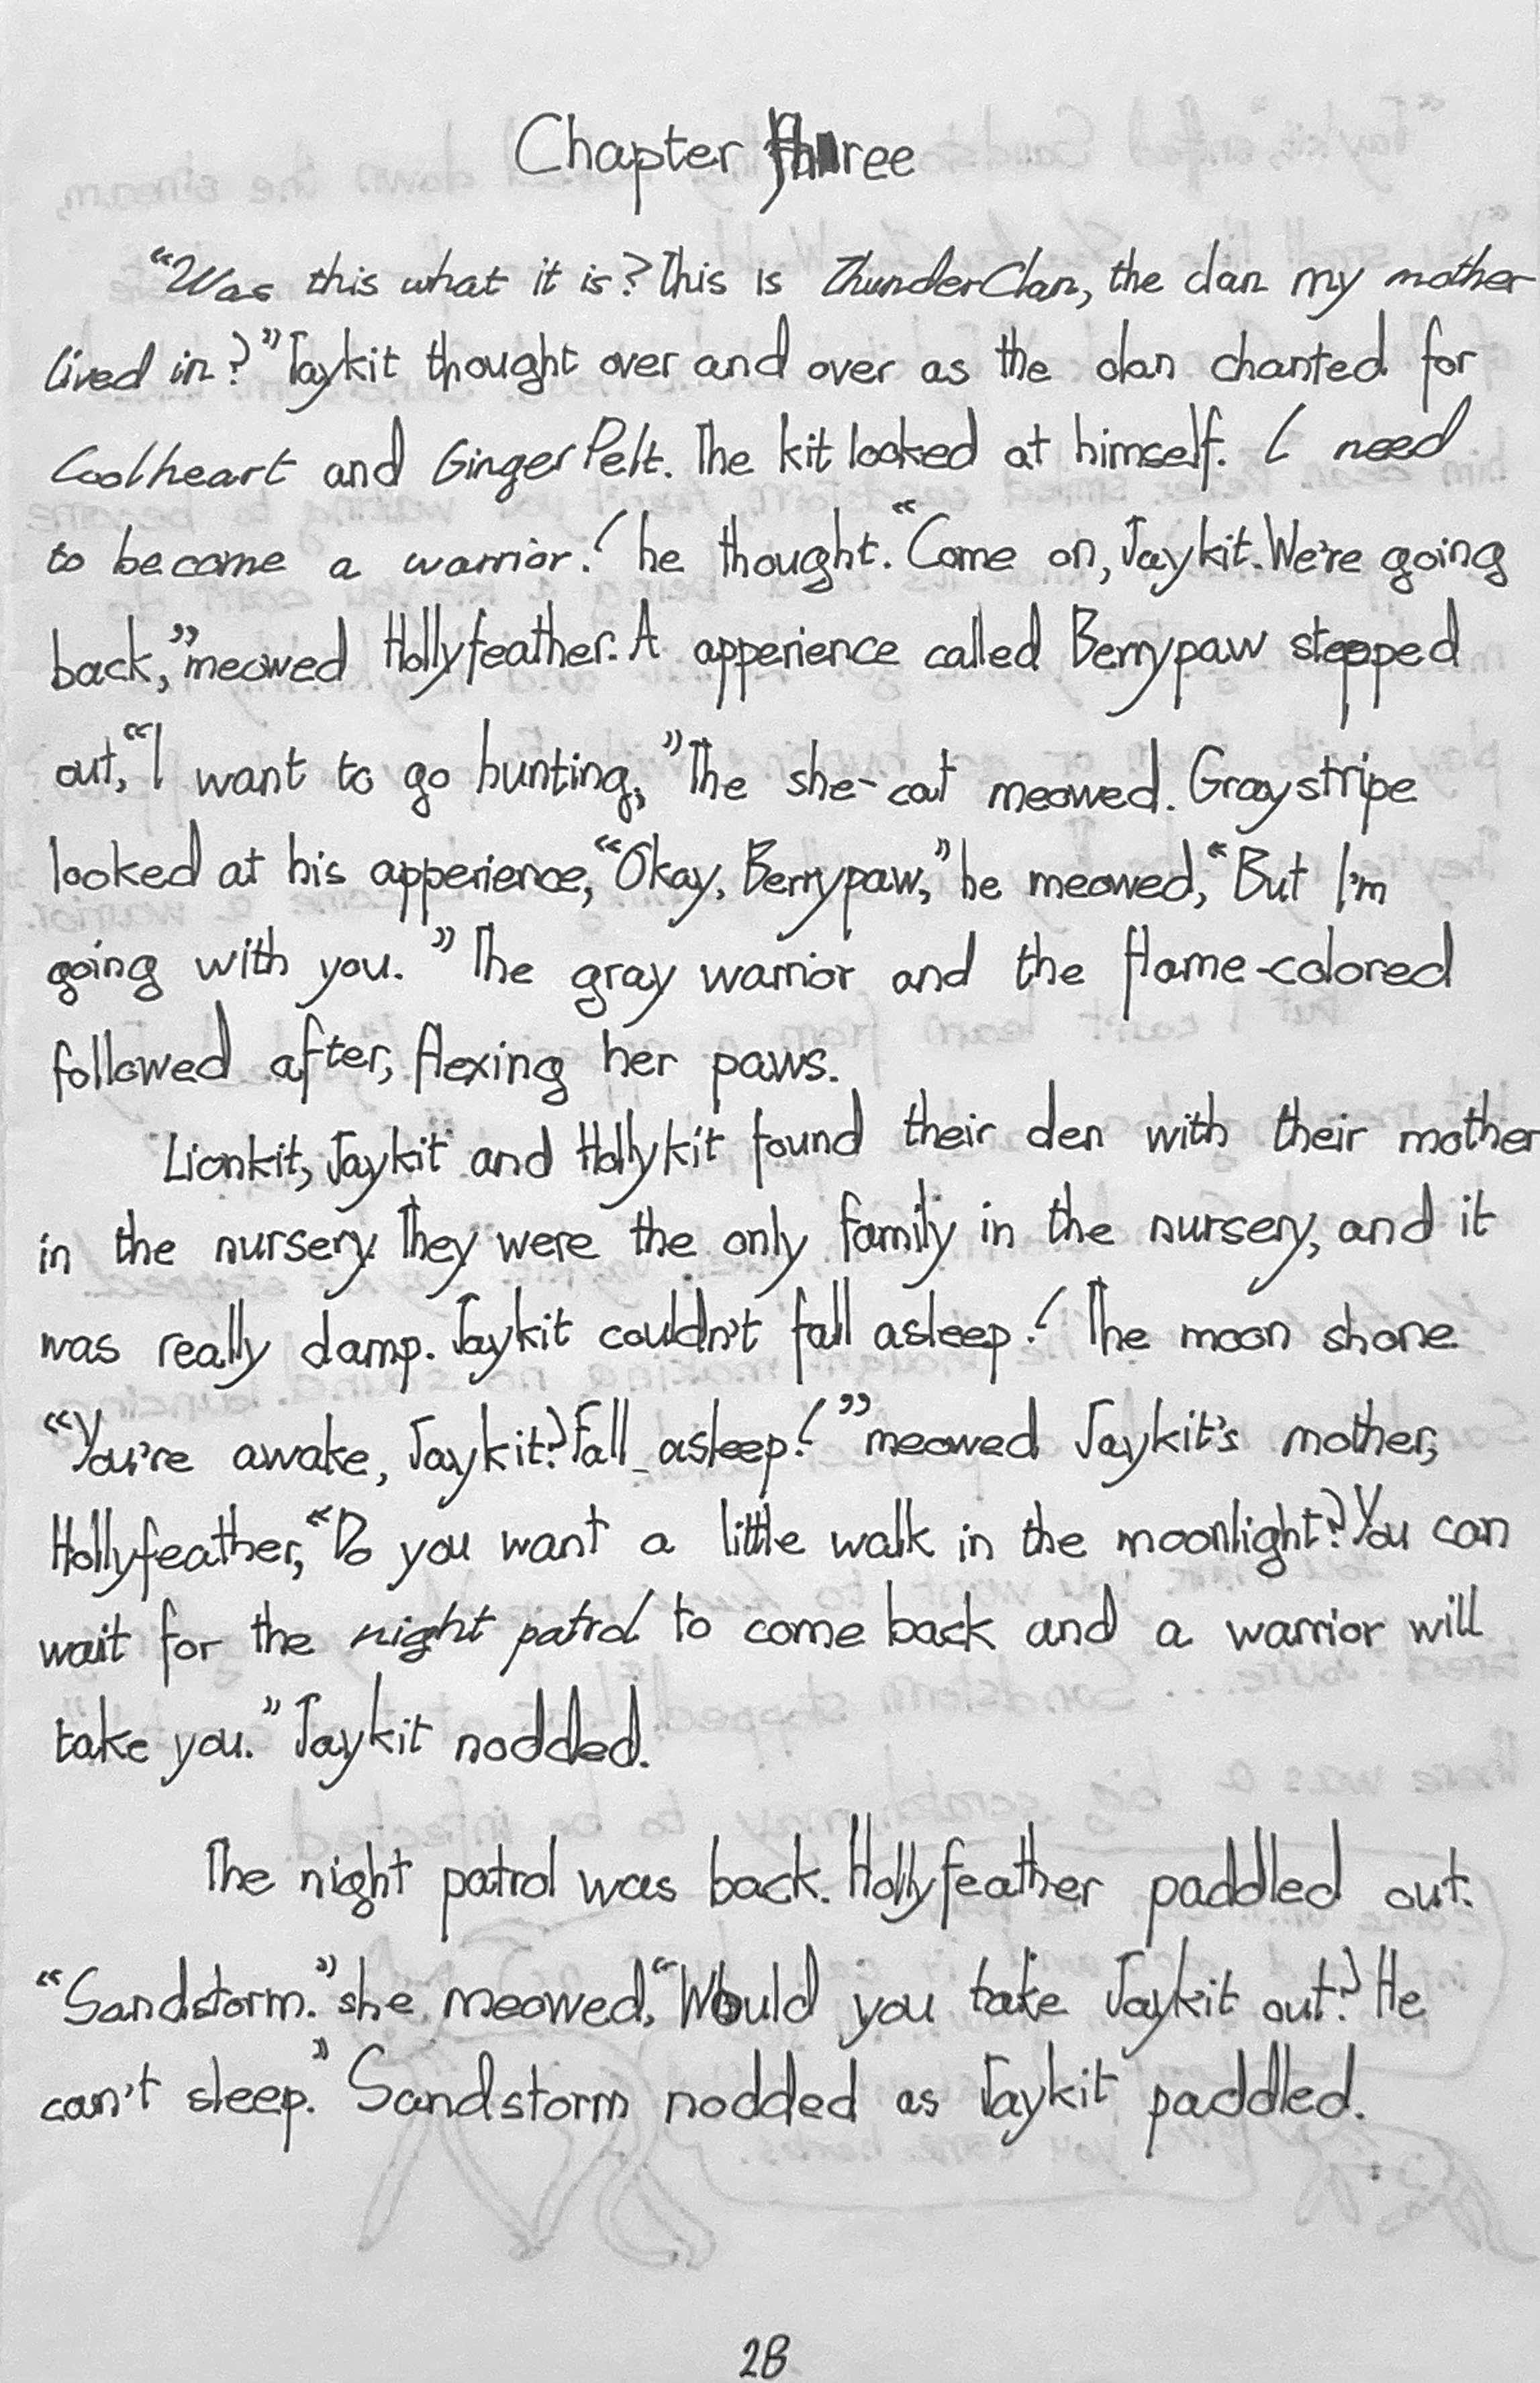 Chapter Three
“Was this what it is? This is ThunderClan, the clan my mother
lived in?” Jaykit thought over and over as the clan chanted for
Coolheart and GingerPelt. The kit looked at himself. I need
to become a warrior! he thought. “Come on, Jaykit. We're going
back,” meowed Hollyfeather. A apperience called Berrypaw stepped
out, “I want to go hunting,” The she-cat meowed. Graystripe
looked at his apperience, “Okay, Berrypaw,” he meowed, “But I'm
going with you.” The gray warrior and the flame-colored
followed after, flexing her paws.
Lionkit, Jaykit and Hollykit found their den with their mother
in the nursery. They were the only family in the nursery, and it
was really damp. Jaykit couldn't fall asleep! The moon shone.
“You're awake, Jaykit? Fall asleep!” meowed Jaykit's mother,
Hollyfeather, “Do you want a little walk in the moonlight? You can
wait for the night patrol to come back and a warrior will
take you.” Jaykit nodded.
The night patrol was back. Hollyfeather paddled out.
“Sandstorm.” she meowed, “Would you take Jaykit out? He
can't sleep.” Sandstorm nodded as Jaykit paddled.
28